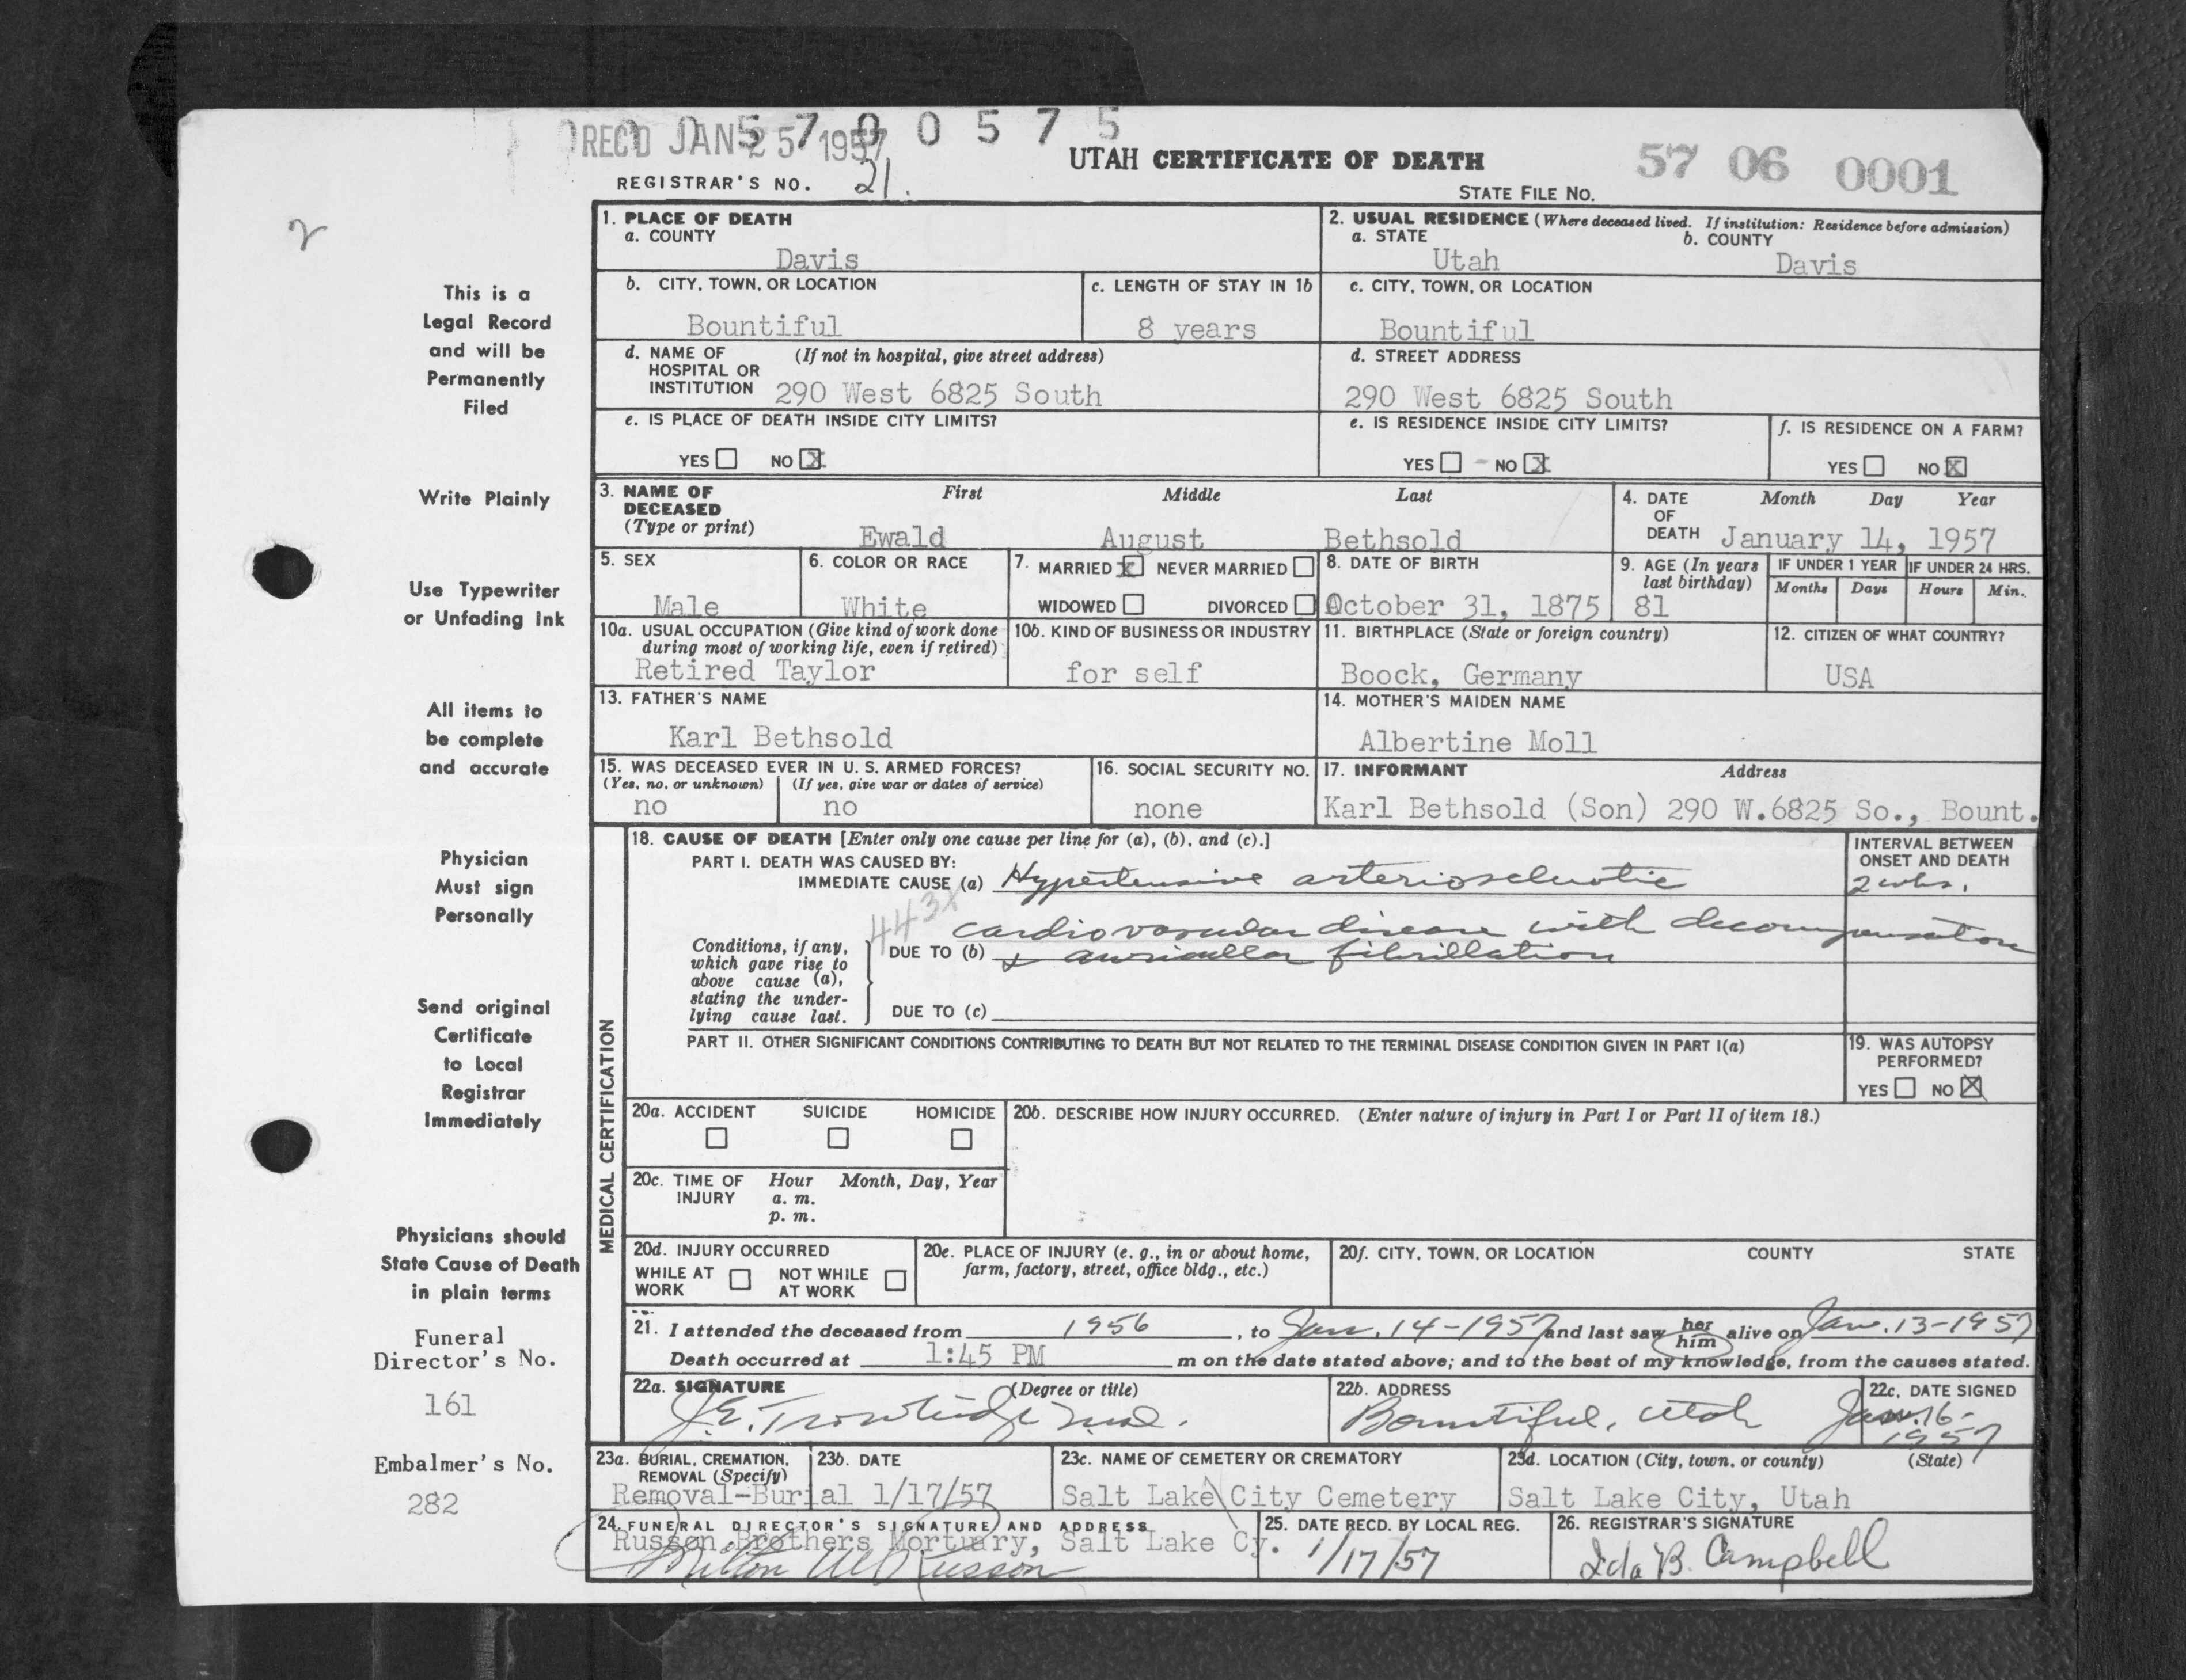 REC'D JAN 25 1957
5 7 0 0 5 7 5
UTAH CERTIFICATE OF DEATH
57 06 0001
REGISTRAR'S NO. 21.
STATE FILE NO.
2
This is a
Legal Record
and will be
Permanently
Filed
Write Plainly
Use Typewriter
or Unfading Ink
All items to
be complete
and accurate
Physician
Must sign
Personally
Send original
Certificate
to Local
Registrar
Immediately
Physicians should
State Cause of Death
in plain terms
Funeral
Director's No.
161
Embalmer's No.
282
1. PLACE OF DEATH
a. COUNTY
Davis
2. USUAL RESIDENCE (Where deceased lived. If institution: Residence before admission)
a. STATE b. COUNTY
Utah Davis
b. CITY, TOWN, OR LOCATION
Bountiful
c. LENGTH OF STAY IN 1b
8 years
c. CITY, TOWN, OR LOCATION
Bountiful
d. NAME OF (If not in hospital, give street address)
HOSPITAL OR
INSTITUTION 290 West 6825 South
d. STREET ADDRESS
290 West 6825 South
e. IS PLACE OF DEATH INSIDE CITY LIMITS?
YES NO X
e. IS RESIDENCE INSIDE CITY LIMITS?
YES - NO X
f. IS RESIDENCE ON A FARM?
YES NO X
3. NAME OF First Middle Last
DECEASED
(Type or print)
Ewald August Bethsold
4. DATE Month Day Year
OF
DEATH January 14, 1957
5. SEX
Male
6. COLOR OR RACE
White
7. MARRIED X NEVER MARRIED
WIDOWED DIVORCED
8. DATE OF BIRTH
October 31, 1875
9. AGE (In years
last birthday)
81
IF UNDER 1 YEAR IF UNDER 24 HRS.
Months Days Hours Min.
10a. USUAL OCCUPATION (Give kind of work done
during most of working life, even if retired)
Retired Taylor
10b. KIND OF BUSINESS OR INDUSTRY
for self
11. BIRTHPLACE (State or foreign country)
Boock, Germany
12. CITIZEN OF WHAT COUNTRY?
USA
13. FATHER'S NAME
Karl Bethsold
14. MOTHER'S MAIDEN NAME
Albertine Moll
15. WAS DECEASED EVER IN U. S. ARMED FORCES?
(Yes, no, or unknown) (If yes, give war or dates of service)
no no
16. SOCIAL SECURITY NO.
none
17. INFORMANT Address
Karl Bethsold (Son) 290 W.6825 So., Bount.
MEDICAL CERTIFICATION
18. CAUSE OF DEATH [Enter only one cause per line for (a), (b), and (c).]
PART I. DEATH WAS CAUSED BY:
IMMEDIATE CAUSE (a) Hypertensive arteriosclerotic
INTERVAL BETWEEN
ONSET AND DEATH
2 wks.
443X
cardiovascular disease with decompensation
Conditions, if any,
which gave rise to
above cause (a),
stating the under-
lying cause last.
DUE TO (b) & auricular fibrillation
DUE TO (c)
PART II. OTHER SIGNIFICANT CONDITIONS CONTRIBUTING TO DEATH BUT NOT RELATED TO THE TERMINAL DISEASE CONDITION GIVEN IN PART I(a)
19. WAS AUTOPSY
PERFORMED?
YES NO X
20a. ACCIDENT SUICIDE HOMICIDE
20b. DESCRIBE HOW INJURY OCCURRED. (Enter nature of injury in Part I or Part II of item 18.)
20c. TIME OF Hour Month, Day, Year
INJURY a. m.
p. m.
20d. INJURY OCCURRED
WHILE AT NOT WHILE
WORK AT WORK
20e. PLACE OF INJURY (e. g., in or about home,
farm, factory, street, office bldg., etc.)
20f. CITY, TOWN, OR LOCATION COUNTY STATE
21. I attended the deceased from 1956, to Jan. 14-1957 and last saw her him alive on Jan. 13-1957
Death occurred at 1:45 PM m on the date stated above; and to the best of my knowledge, from the causes stated.
22a. SIGNATURE (Degree or title)
J.E. Trowbridge M.D.
22b. ADDRESS
Bountiful, Utah
22c. DATE SIGNED
Jan. 16-
1957
23a. BURIAL, CREMATION,
REMOVAL (Specify)
Removal-Burial
23b. DATE
1/17/57
23c. NAME OF CEMETERY OR CREMATORY
Salt Lake City Cemetery
23d. LOCATION (City, town, or county) (State)
Salt Lake City, Utah
24. FUNERAL DIRECTOR'S SIGNATURE AND ADDRESS
Russon Brothers Mortuary, Salt Lake Cy.
Milton W Russon
25. DATE RECD. BY LOCAL REG.
1/17/57
26. REGISTRAR'S SIGNATURE
Ida B. Campbell